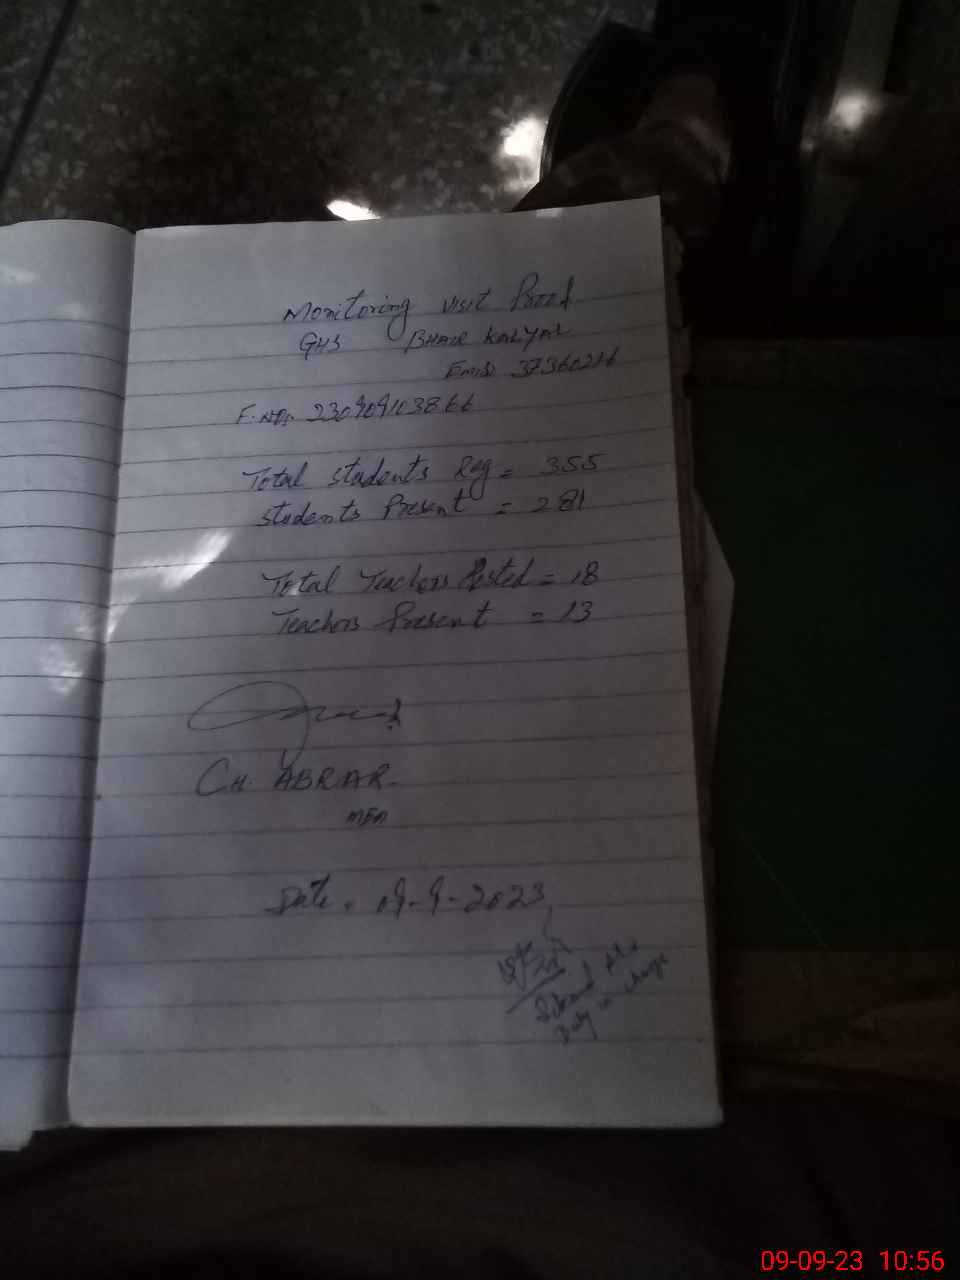 Monitoring visit Proof
GHS BHAIR KALYAL
Emis 37360216
F. NO. 230909103866
Total students Reg = 355
students Present = 281
Total Teachers Posted = 18
Teachers Present = 13
CH. ABRAR
MEA
Date. 09-9-2023
Duty in charge
09-09-23 10:56